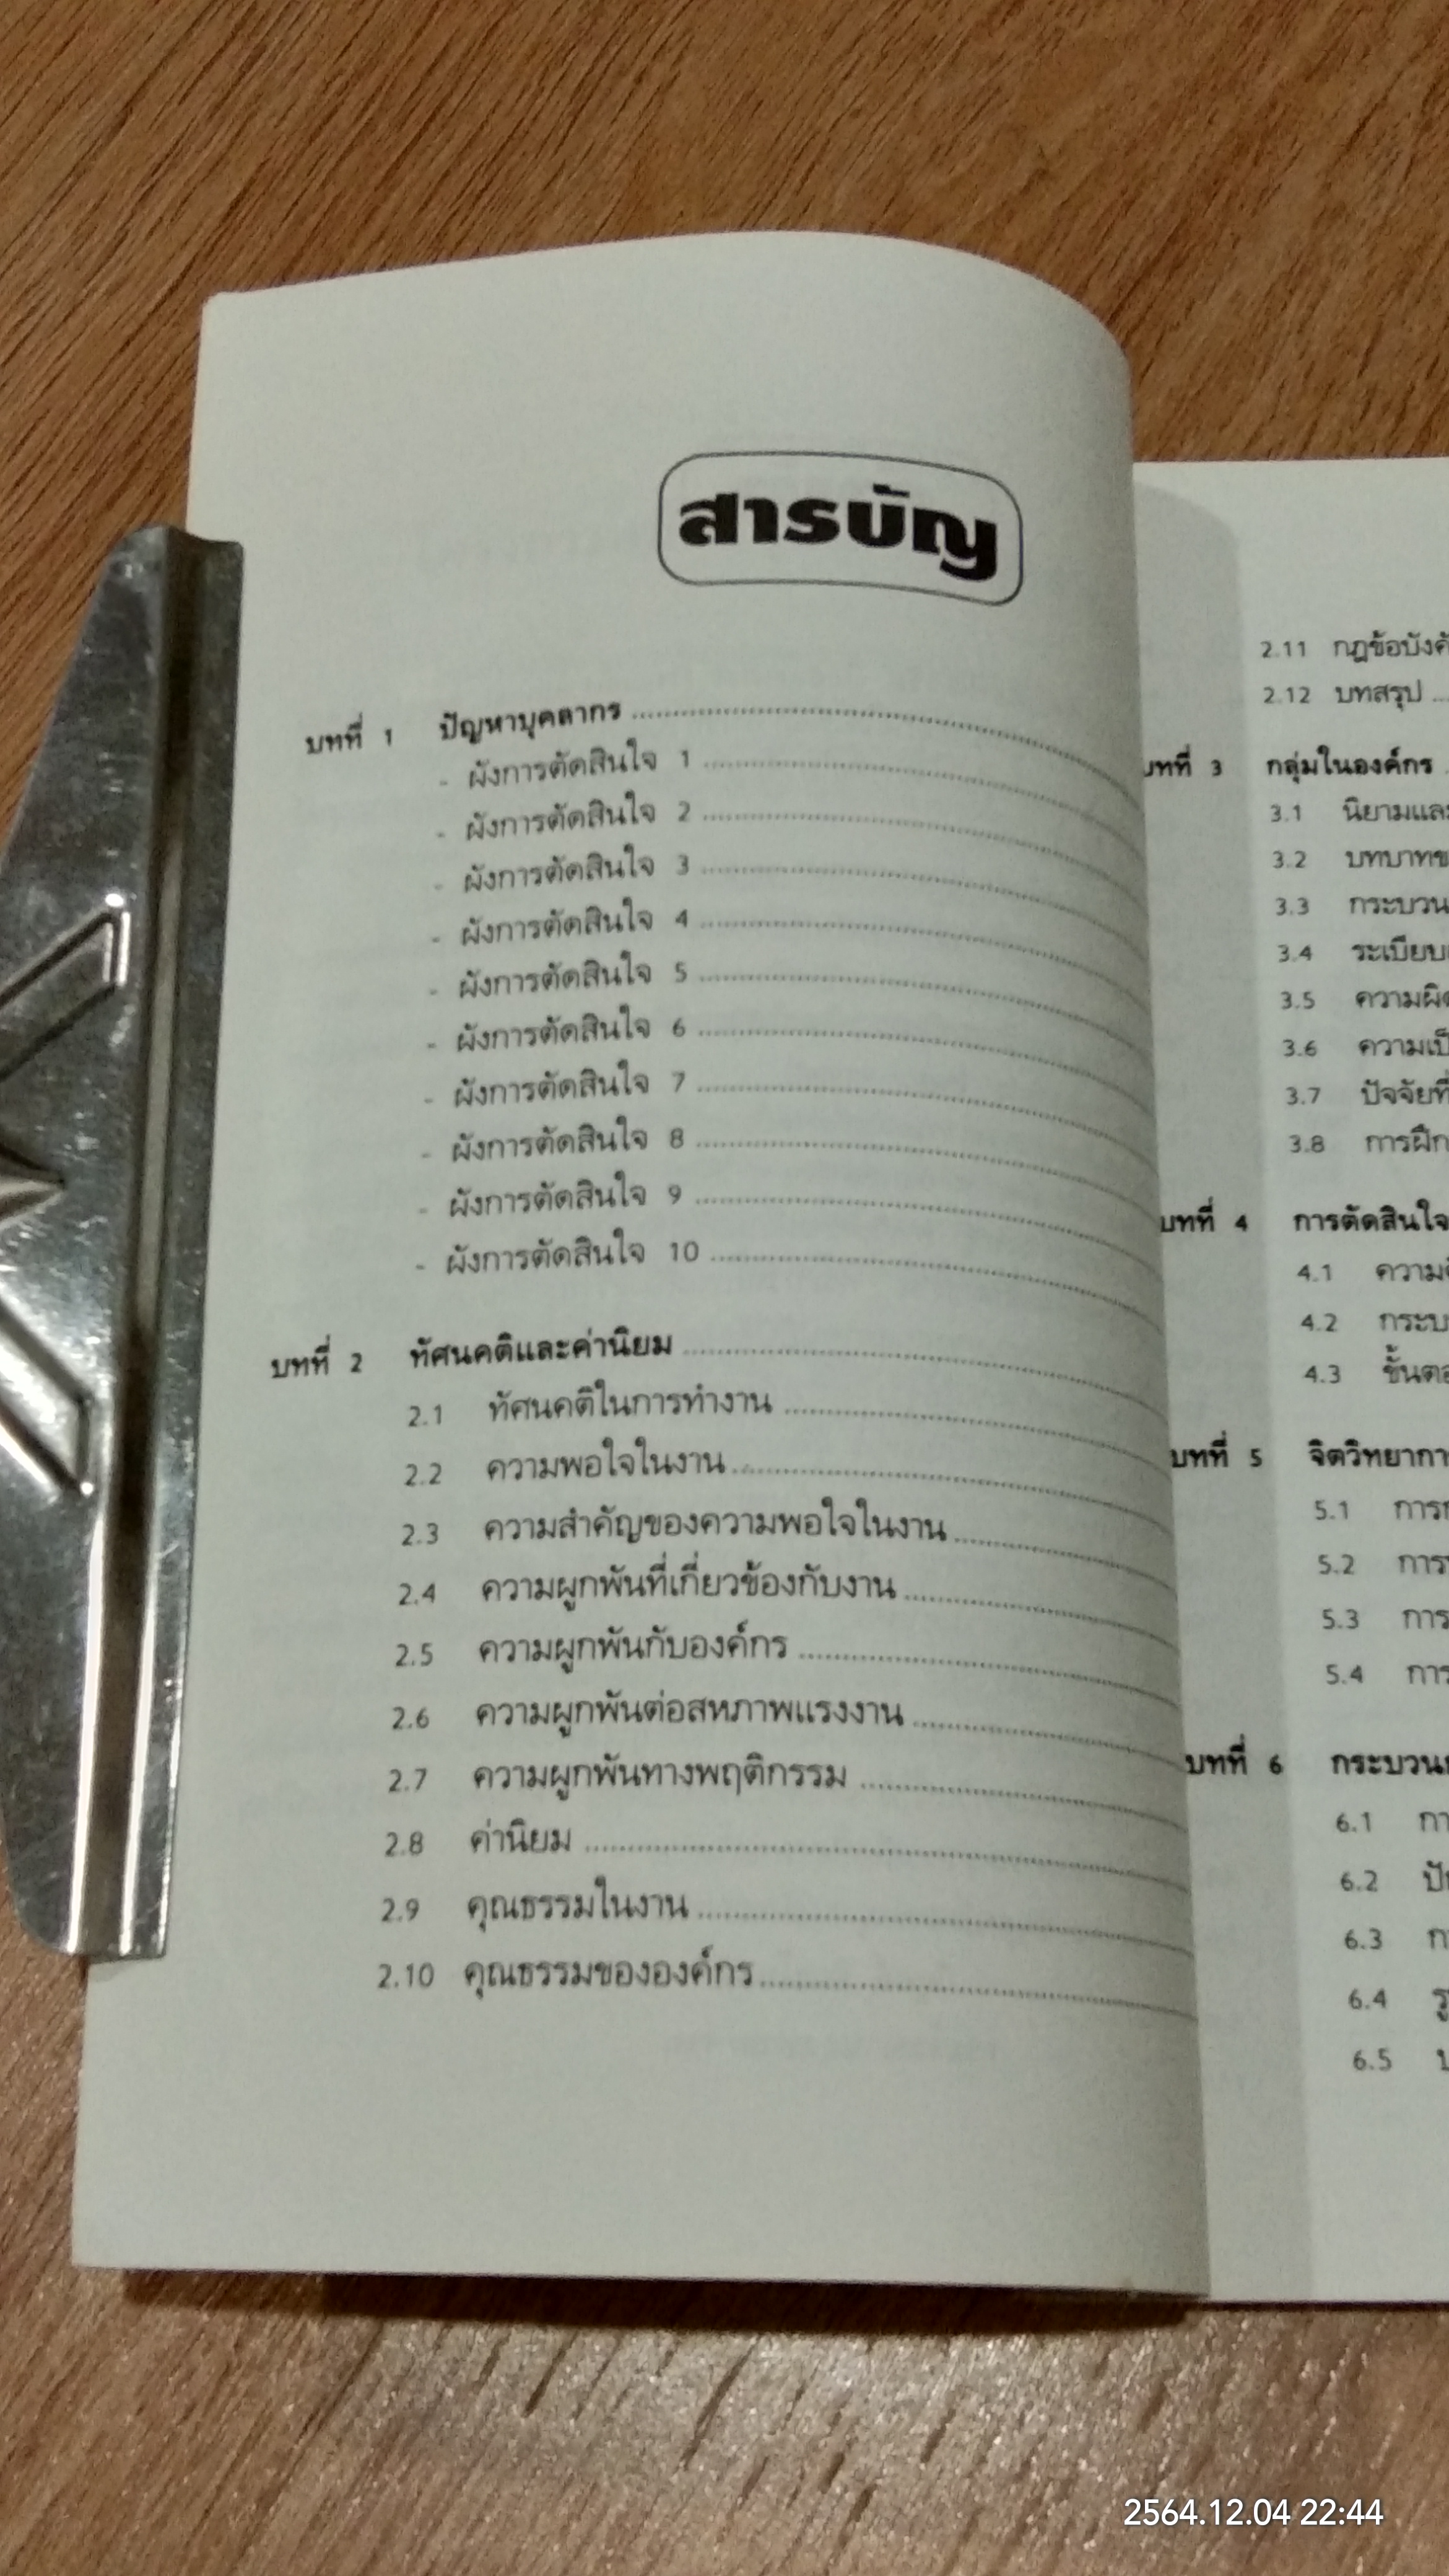 สารบัญ
บทที่ 1 ปัญหาบุคลากร
- ผังการตัดสินใจ 1
- ผังการตัดสินใจ 2
- ผังการตัดสินใจ 3
- ผังการตัดสินใจ 4
- ผังการตัดสินใจ 5
- ผังการตัดสินใจ 6
- ผังการตัดสินใจ 7
- ผังการตัดสินใจ 8
- ผังการตัดสินใจ 9
- ผังการตัดสินใจ 10
บทที่ 2 ทัศนคติและค่านิยม
2.1 ทัศนคติในการทำงาน
2.2 ความพอใจในงาน
2.3 ความสำคัญของความพอใจในงาน
2.4 ความผูกพันที่เกี่ยวข้องกับงาน
2.5 ความผูกพันกับองค์กร
2.6 ความผูกพันต่อสหภาพแรงงาน
2.7 ความผูกพันทางพฤติกรรม
2.8 ค่านิยม
2.9 คุณธรรมในงาน
2.10 คุณธรรมขององค์กร
2.11 กฎข้อบังคั
2.12 บทสรุป
บทที่ 3 กลุ่มในองค์กร
3.1 นิยามและ
3.2 บทบาทข
3.3 กระบวน
3.4 ระเบียบ
3.5 ความผิด
3.6 ความเป็
3.7 ปัจจัยที่
3.8 การฝึก
บทที่ 4 การตัดสินใจ
4.1 ความ
4.2 กระบ
4.3 ขั้นตอ
บทที่ 5 จิตวิทยากา
5.1 การ
5.2 การ
5.3 การ
5.4 การ
บทที่ 6 กระบวน
6.1 กา
6.2 ปั
6.3 ก
6.4 รู
6.5
2564.12.04 22:44